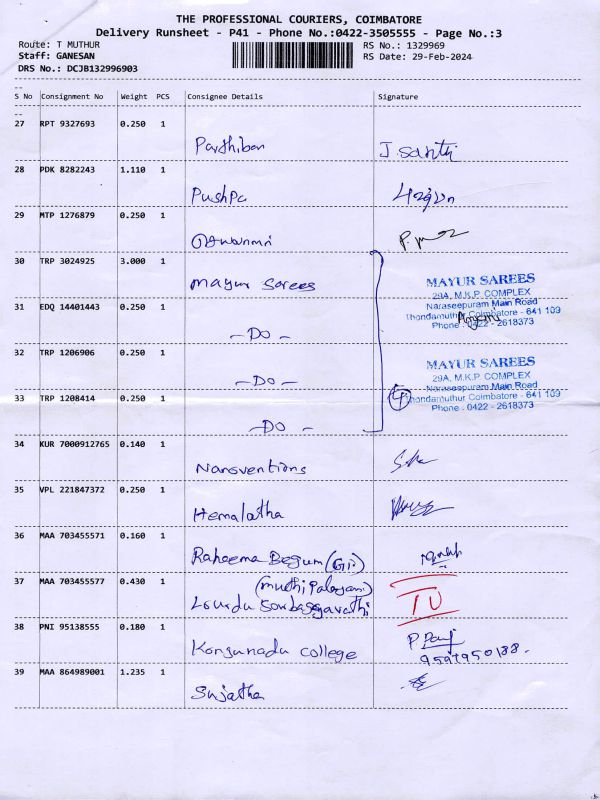 THE PROFESSIONAL COURIERS, COIMBATORE
Delivery Runsheet - P41 - Phone No.:0422-3505555 - Page No.:3
Route: T MUTHUR RS No.: 1329969
Staff: GANESAN RS Date: 29-Feb-2024
DRS No.: DCJB132996903
S No Consignment No Weight PCS Consignee Details Signature
27 RPT 9327693 0.250 1
Parthiban J. Santhi
28 PDK 8282243 1.110 1
Pushpa
29 MTP 1276879 0.250 1
30 TRP 3024925 3.000 1
Mayur Sarees
MAYUR SAREES
29A, M.K.P. COMPLEX
Naraseepuram Main Road
Thondamuthur Coimbatore - 641 109
Phone : 0422 - 2618373
31 EDQ 14401443 0.250 1
- DO -
32 TRP 1206906 0.250 1
- DO -
MAYUR SAREES
29A, M.K.P. COMPLEX
Naraseepuram Main Road
Thondamuthur Coimbatore - 641 109
Phone : 0422 - 2618373
33 TRP 1208414 0.250 1
4
- DO -
34 KUR 7000912765 0.140 1
Nansventions
35 VPL 221847372 0.250 1
Hemalatha
36 MAA 703455571 0.160 1
Raheema Begum
37 MAA 703455577 0.430 1
Lourdu
38 PNI 95138555 0.180 1
Kongunadu college
39 MAA 864989001 1.235 1
Sujatha